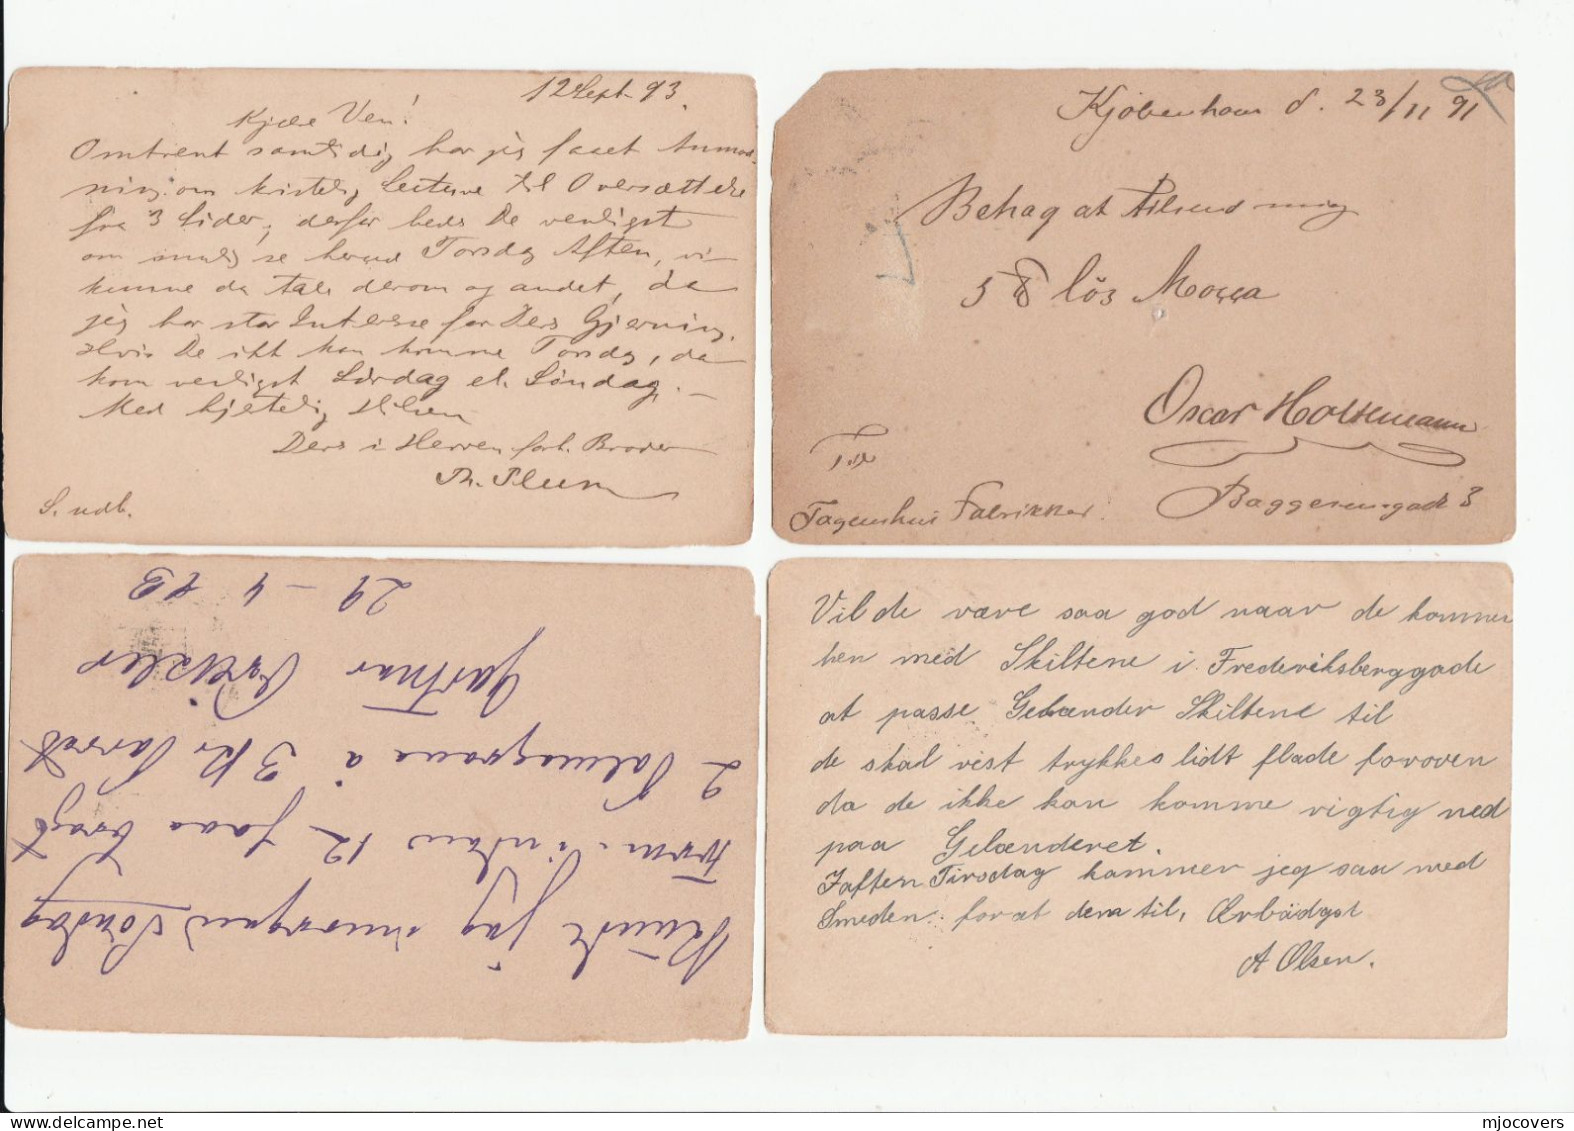 12 Sept 93.
Kjære Ven!
Omtrent samtidig har jeg faaet Anmod-
ning om kistelig Lecture til Oversættelse
fra 3 Sider, derfor beder De venligst
om mulig se herud Torsdag Aften, vi
kunne da tale derom og andet, da
jeg har stor Interesse for Ders Gjerning.
Hvis De ikk kan komme Torsdag, da
kom venligst Lørdag el. Søndag. –
Med hjertelig Hilsen
Ders i Herren forb. Broder
Th. Plum
S. udb.
Kjøbenhavn d. 23/11 91
Behag at tilsend mig
5 ℔ lös Mocca
Oscar Holtzmann
Baggesensgade 3
Til
Fabrikker
jeg imorgen Søndag
Form. inden 12 faae bragt
2 à 3 Kr
Gartner
29 – 4 83
Vil de være saa god naar de kommer
hen med Skiltene i Frederiksberggade
at passe Gelænder Skiltene til
de skal vist trykkes lidt flade foroven
da de ikke kan komme rigtig ned
paa Gelænderet.
Iaften Tirsdag kommer jeg saa med
Smeden for at dem til, Ærbödgst
A Olsen.
mjocovers